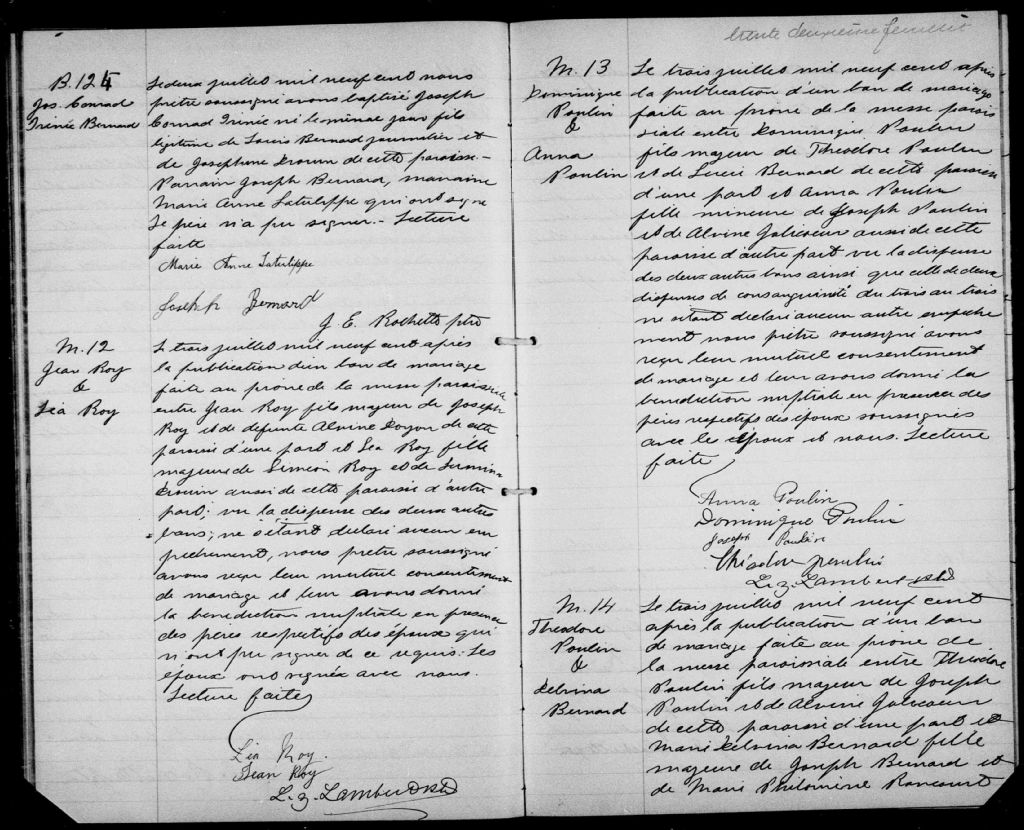 B. 124
Jos. Conrad
Irénée Bernard
Le deux juillet mil neuf cent nous
prêtre soussigné avons baptisé Joseph
Conrad Irénée né le même jour fils
légitime de Louis Bernard journalier et
de Josephine Drouin de cette paroisse.-
Parrain Joseph Bernard, marraine
Marie Anne Latulippe qui ont signé
Le père n'a pu signer.- Lecture
faite
Marie Anne Latulippe
Joseph Bernard
J. E. Rochette ptre
M. 12
Jean Roy
&
Léa Roy
Le trois juillet mil neuf cent après
la publication d'un ban de mariage
faite au prône de la messe paroissiale
entre Jean Roy fils majeur de Joseph
Roy et de défunte Alvine Doyon de cette
paroisse d'une part et Léa Roy fille
majeure de Simeon Roy et de
Drouin aussi de cette paroisse d'autre
part; vu la dispense des deux autres
bans; ne s'étant déclaré aucun em
pêchement, nous prêtre soussigné
avons reçu leur mutuel consentement
de mariage et leur avons donné
la bénédiction nuptiale en présence
des pères respectifs des époux qui
n'ont pu signer de ce requis. Les
époux ont signés avec nous.
Lecture faite
Léa Roy.
Jean Roy
L. Z. Lambert
trente deuxième feuillet
M. 13
Dominique
Poulin
&
Anna
Poulin
Le trois juillet mil neuf cent après
la publication d'un ban de mariage
faite au prône de la messe parois
siale entre Dominique Poulin
fils majeur de Theodore Poulin
et de Lucie Bernard de cette paroisse
d'une part et Anna Poulin
fille mineure de Joseph Poulin
et de Alvine Jolicoeur aussi de cette
paroisse d'autre part vu la dispense
des deux autres bans ainsi que celle de deux
dispenses de consanguinité du trois au trois
ne s'étant déclaré aucun autre empêche
ment nous prêtre soussigné avons
reçu leur mutuel consentement
de mariage et leur avons donné la
bénédiction nuptiale en présence des
pères respectifs des époux soussignés
avec les époux et nous. Lecture
faite
Anna Poulin
Dominique Poulin
Joseph Poulin
Théodore poulin
L. Z. Lambert
M. 14
Theodore
Poulin
&
Delvina
Bernard
Le trois juillet mil neuf cent
après la publication d'un ban
de mariage faite au prône de
la messe paroissiale entre Théodore
Poulin fils majeur de Joseph
Poulin et de Alvine Jolicoeur
de cette paroisse d'une part et
Marie Delvina Bernard fille
majeure de Joseph Bernard et
de Marie Philomène Rancourt